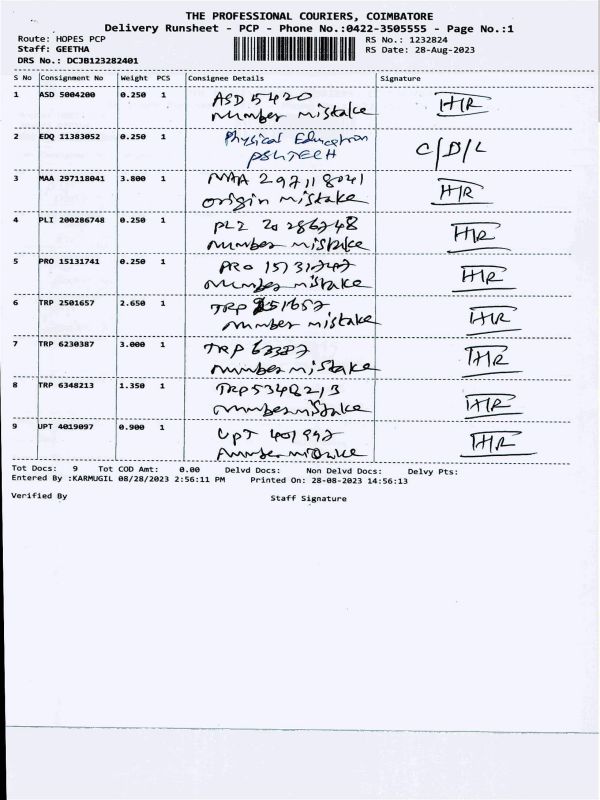 THE PROFESSIONAL COURIERS, COIMBATORE
Delivery Runsheet - PCP - Phone No.:0422-3505555 - Page No.:1
Route: HOPES PCP RS No.: 1232824
Staff: GEETHA RS Date: 28-Aug-2023
DRS No.: DCJB123282401
S No Consignment No Weight PCS Consignee Details Signature
1 ASD 5004200 0.250 1 ASD 5420 HR
number mistake
2 EDQ 11383052 0.250 1 Physical Education C/D/L
PSGTECH
3 MAA 297118041 3.800 1 MAA 297118041 HR
origin mistake
4 PLI 200286748 0.250 1 PLI 20286748 HR
number mistake
5 PRO 15131741 0.250 1 PRO HR
number mistake
6 TRP 2501657 2.650 1 TRP 251657 HR
number mistake
7 TRP 6230387 3.000 1 TRP HR
number mistake
8 TRP 6348213 1.350 1 TRP5348213 HR
number mistake
9 UPT 4019097 0.900 1 UPT 401997 HR
number mistake
Tot Docs: 9 Tot COD Amt: 0.00 Delvd Docs: Non Delvd Docs: Delvy Pts:
Entered By :KARMUGIL 08/28/2023 2:56:11 PM Printed On: 28-08-2023 14:56:13
Verified By Staff Signature